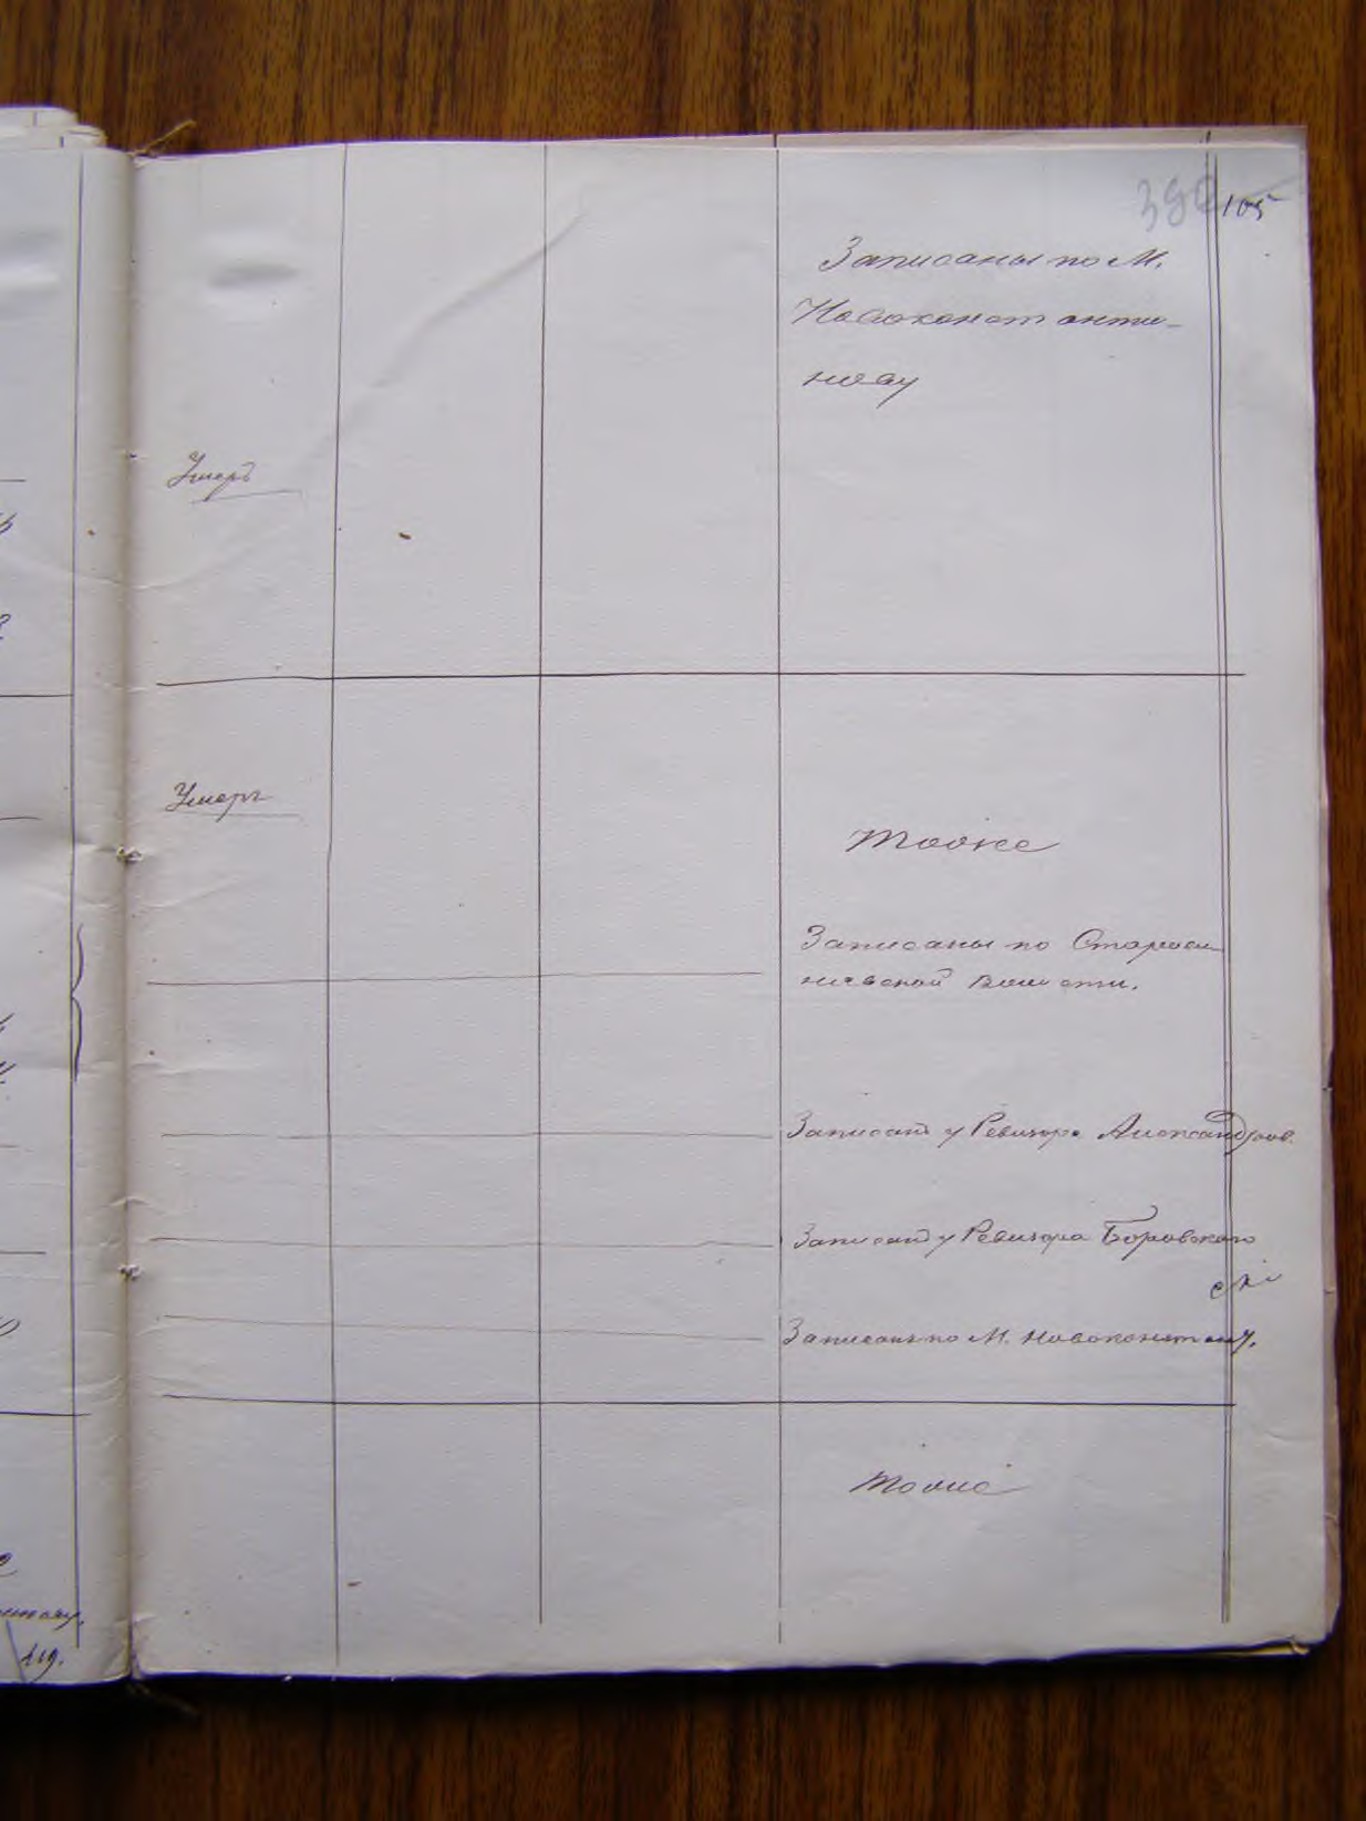 105
Записаны по М.
Новоконстанти-
нову
Умеръ
Умеръ
тоже
Записаны по
волости.
Записанъ у Ревизора Александров.
Записанъ у Ревизора Боровскаго
Записанъ по М. Новоконст
тоже
119.